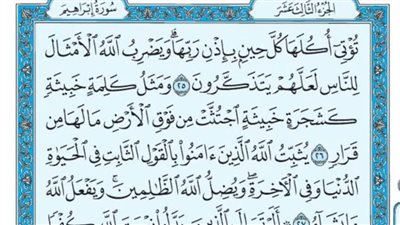 الجزء الثالث عشر
سورة إبراهيم
تُؤْتِي أُكُلَهَا كُلَّ حِينٍ بِإِذْنِ رَبِّهَا ۗ وَيَضْرِبُ اللَّهُ الْأَمْثَالَ
لِلنَّاسِ لَعَلَّهُمْ يَتَذَكَّرُونَ ٢٥ وَمَثَلُ كَلِمَةٍ خَبِيثَةٍ
كَشَجَرَةٍ خَبِيثَةٍ اجْتُثَّتْ مِن فَوْقِ الْأَرْضِ مَا لَهَا مِن
قَرَارٍ ٢٦ يُثَبِّتُ اللَّهُ الَّذِينَ ءَامَنُوا بِالْقَوْلِ الثَّابِتِ فِي الْحَيَوٰةِ
الدُّنْيَا وَفِي الْءَاخِرَةِ ۖ وَيُضِلُّ اللَّهُ الظَّٰلِمِينَ ۚ وَيَفْعَلُ اللَّهُ